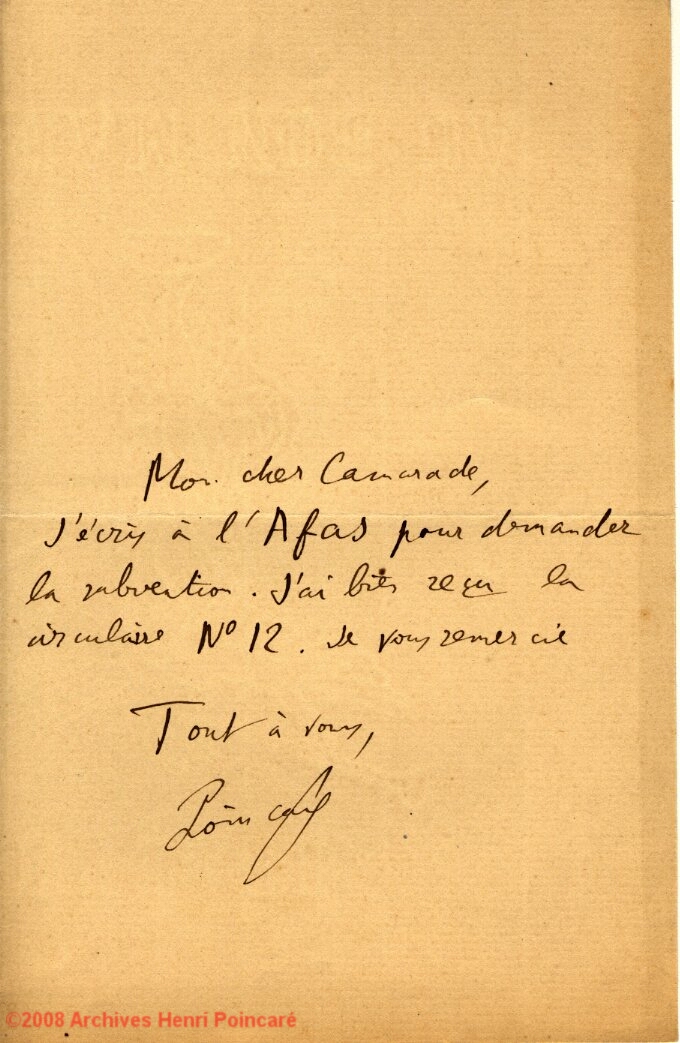 Mon cher Camarade,
J'écris à l'Afas pour demander
la subvention. J'ai bien reçu la
circulaire Nº 12. Je vous remercie
Tout à vous,
Poincaré
©2008 Archives Henri Poincaré